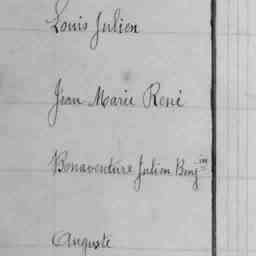 Louis Julien
Jean Marie René
Bonaventure Julien Benj.in
Auguste